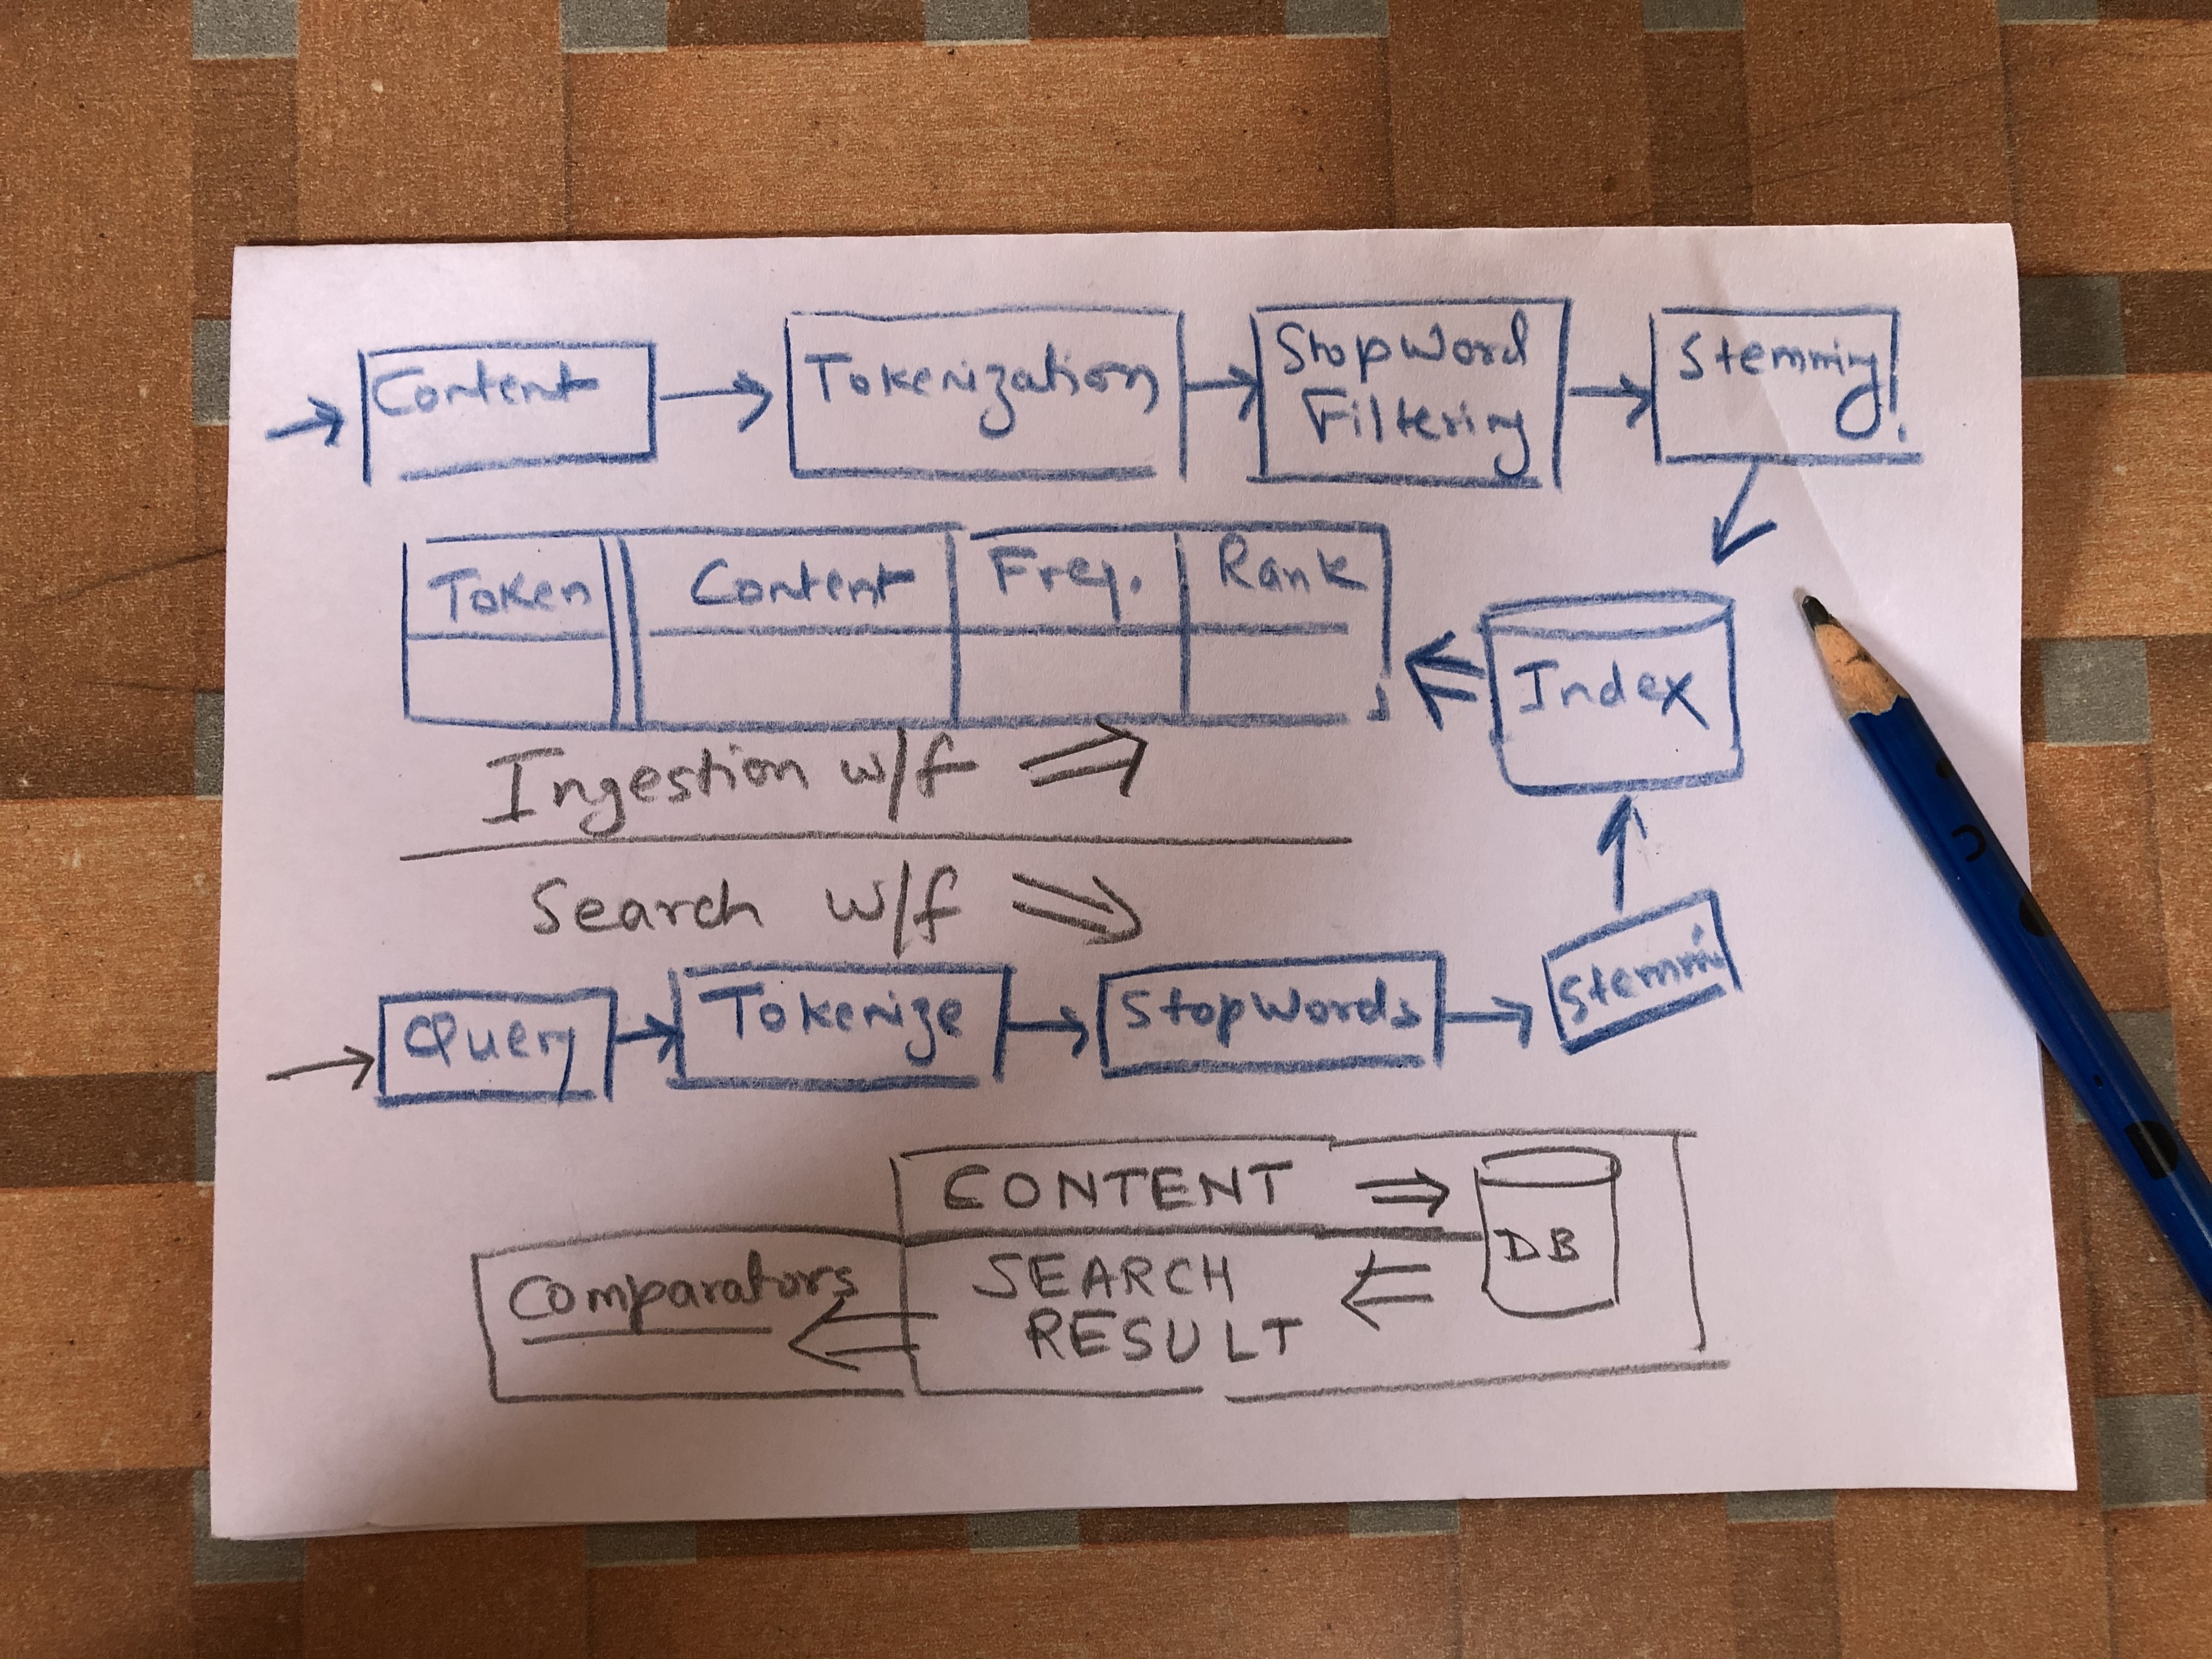 Content
Tokenization
StopWord
Filtering
Stemming
Token Content Freq. Rank
Index
Ingestion w/f
Search w/f
Query
Tokenize
StopWords
Stemmi
CONTENT
DB
SEARCH
RESULT
Comparators